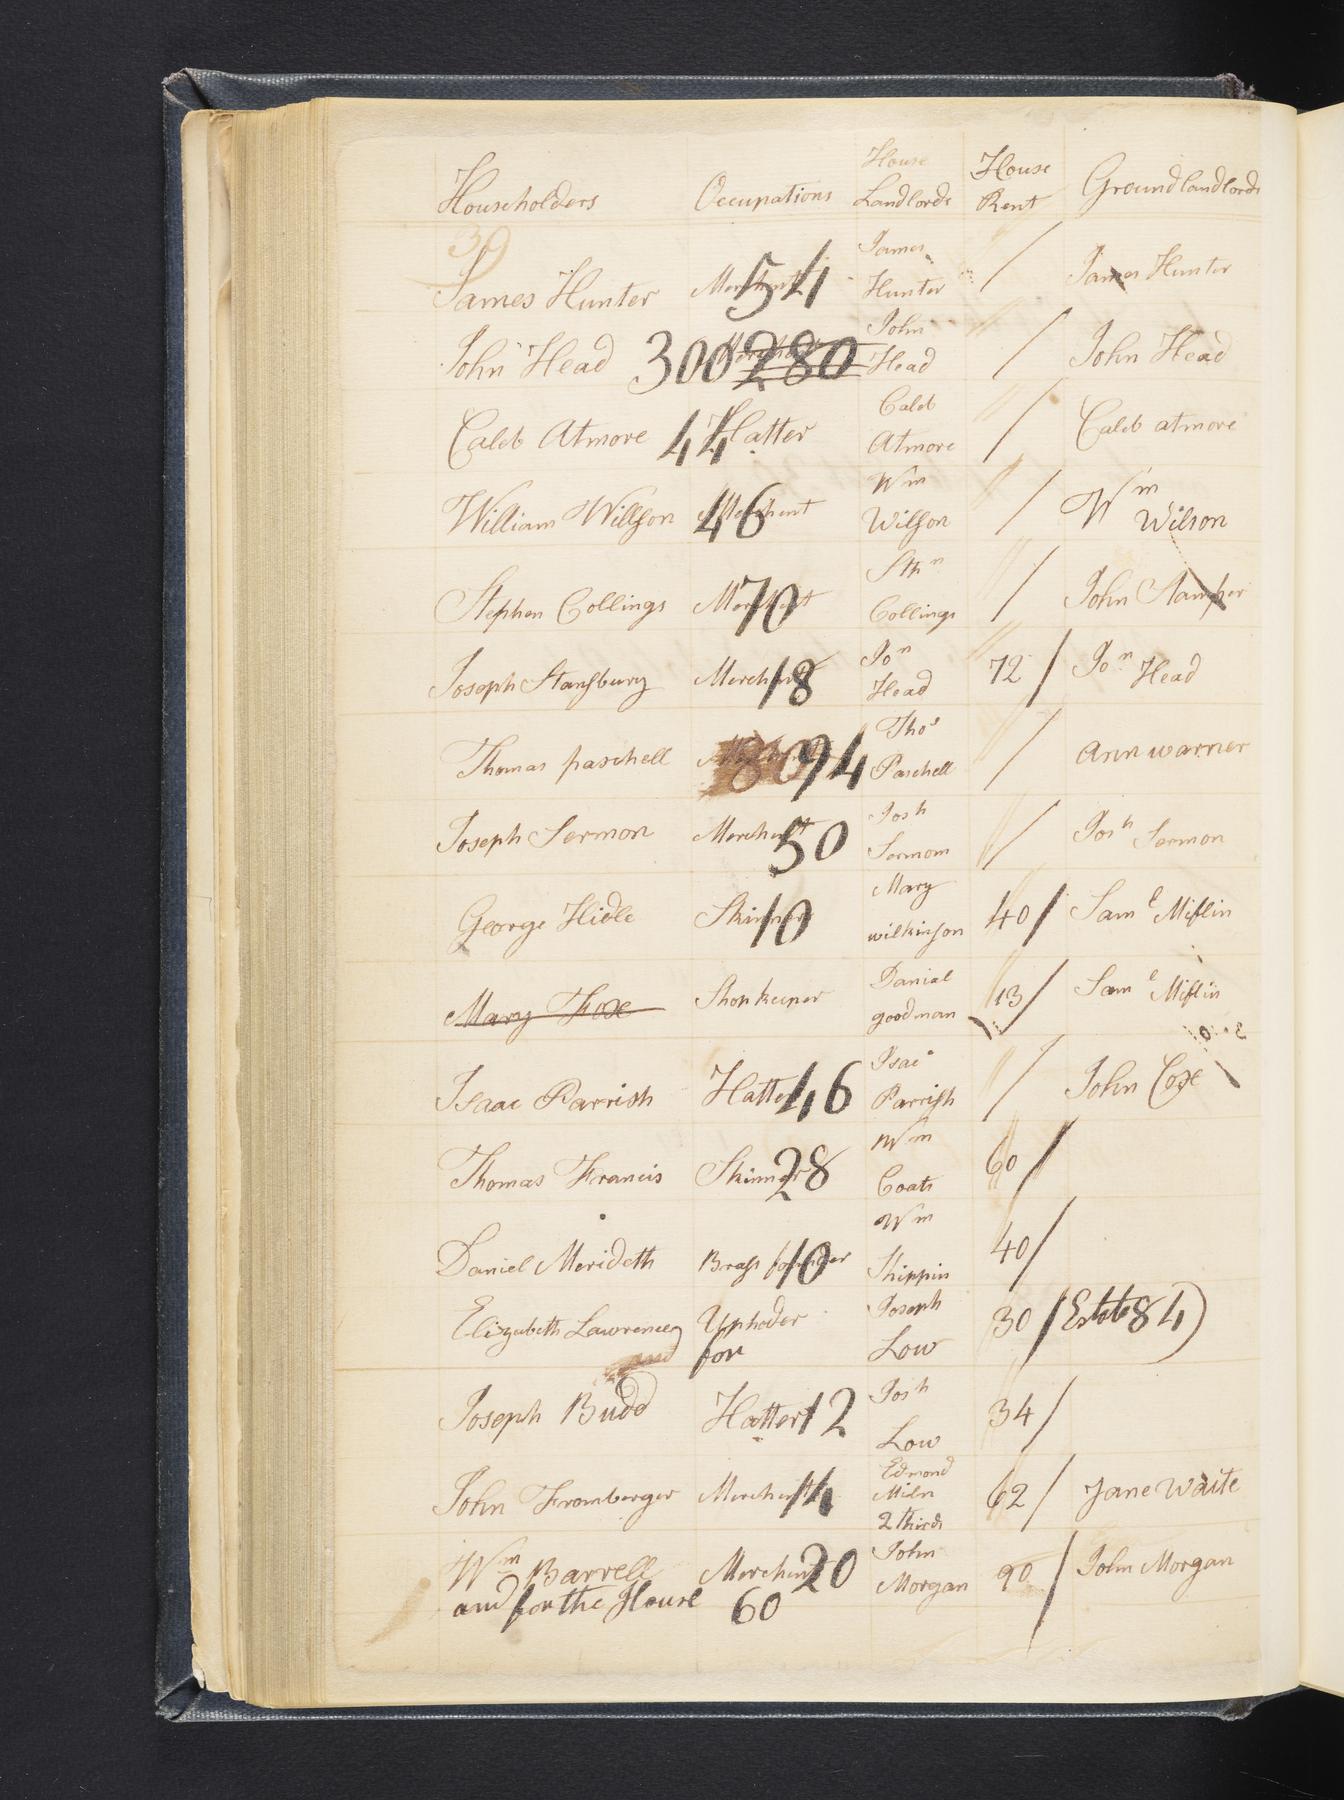 Householders Occupations House Landlords House Rent Groundlandlords
39
James Hunter Merchent 54 James Hunter / James Hunter
John Head 300 280 John Head / John Head
Caleb Atmore 44 Hatter Caleb Atmore / Caleb atmore
William Willson Merchent 46 Wm Wilson / Wm Wilson
Stephen Collings Merchent 70 Stpn Collings / John Stamper
Joseph Stansbury Merchent 18 Jon Head 72 / Jon Head
Thomas paschell 80 94 Thos Paschell / Ann warner
Joseph Sermon Merchent 50 Josh Sermom / Josh Sermon
George Hidle Skinner 10 Mary wilkinson 40 / Saml Miflin
Mary Foxe Shopkeeper Danial goodman 13 / Saml Miflin
Isaac Parrish Hatter 46 Isac Parrish / John Coxe
Thomas Francis Skinner 28 Wm Coats 60 /
Daniel Merideth Brass founder 10 Wm Shippin 40 /
Elizabeth Lawrence Uphoder Joseph Low 30 / Estate 84)
and for
Joseph Budd Hatter 12 Josh Low 34 /
John Fromberger Merchent 14 Edmond Miln 2 thirds 62 / Jane Waite
Wm Barrell Merchent 20 John Morgan 90 / John Morgan
and for the House 60